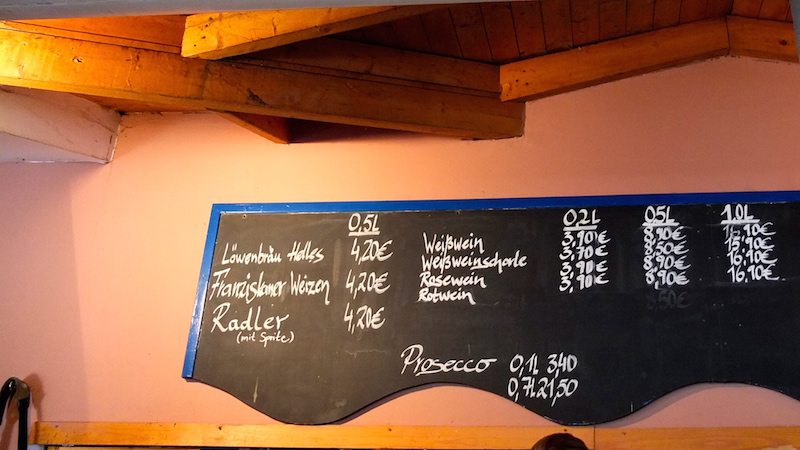 0,5L
Löwenbräu Helles 4,20€
Franziskaner Weizen 4,20€
Radler 4,20€
(mit Sprite)
0,2L 0,5L 1.0L
Weißwein 3,90€ 8,90€
Weißweinschorle 3,70€ 8,50€ 15,90€
Rosewein 3,90€ 8,90€ 16,90€
Rotwein 3,90€ 8,90€ 16,90€
Prosecco 0,1L 3,40
0,7L 21,50